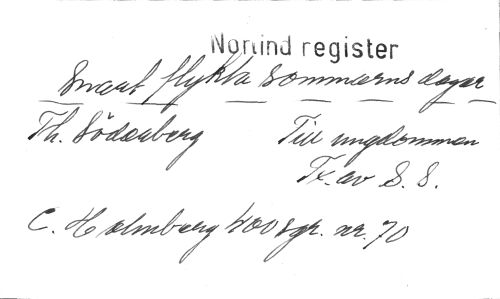 Norlind register
Snart flykta Sommarns dagar
Th. Söderberg Till ungdommen
Tx. av S. S.
C. Holmberg 400 sgr. nr. 70